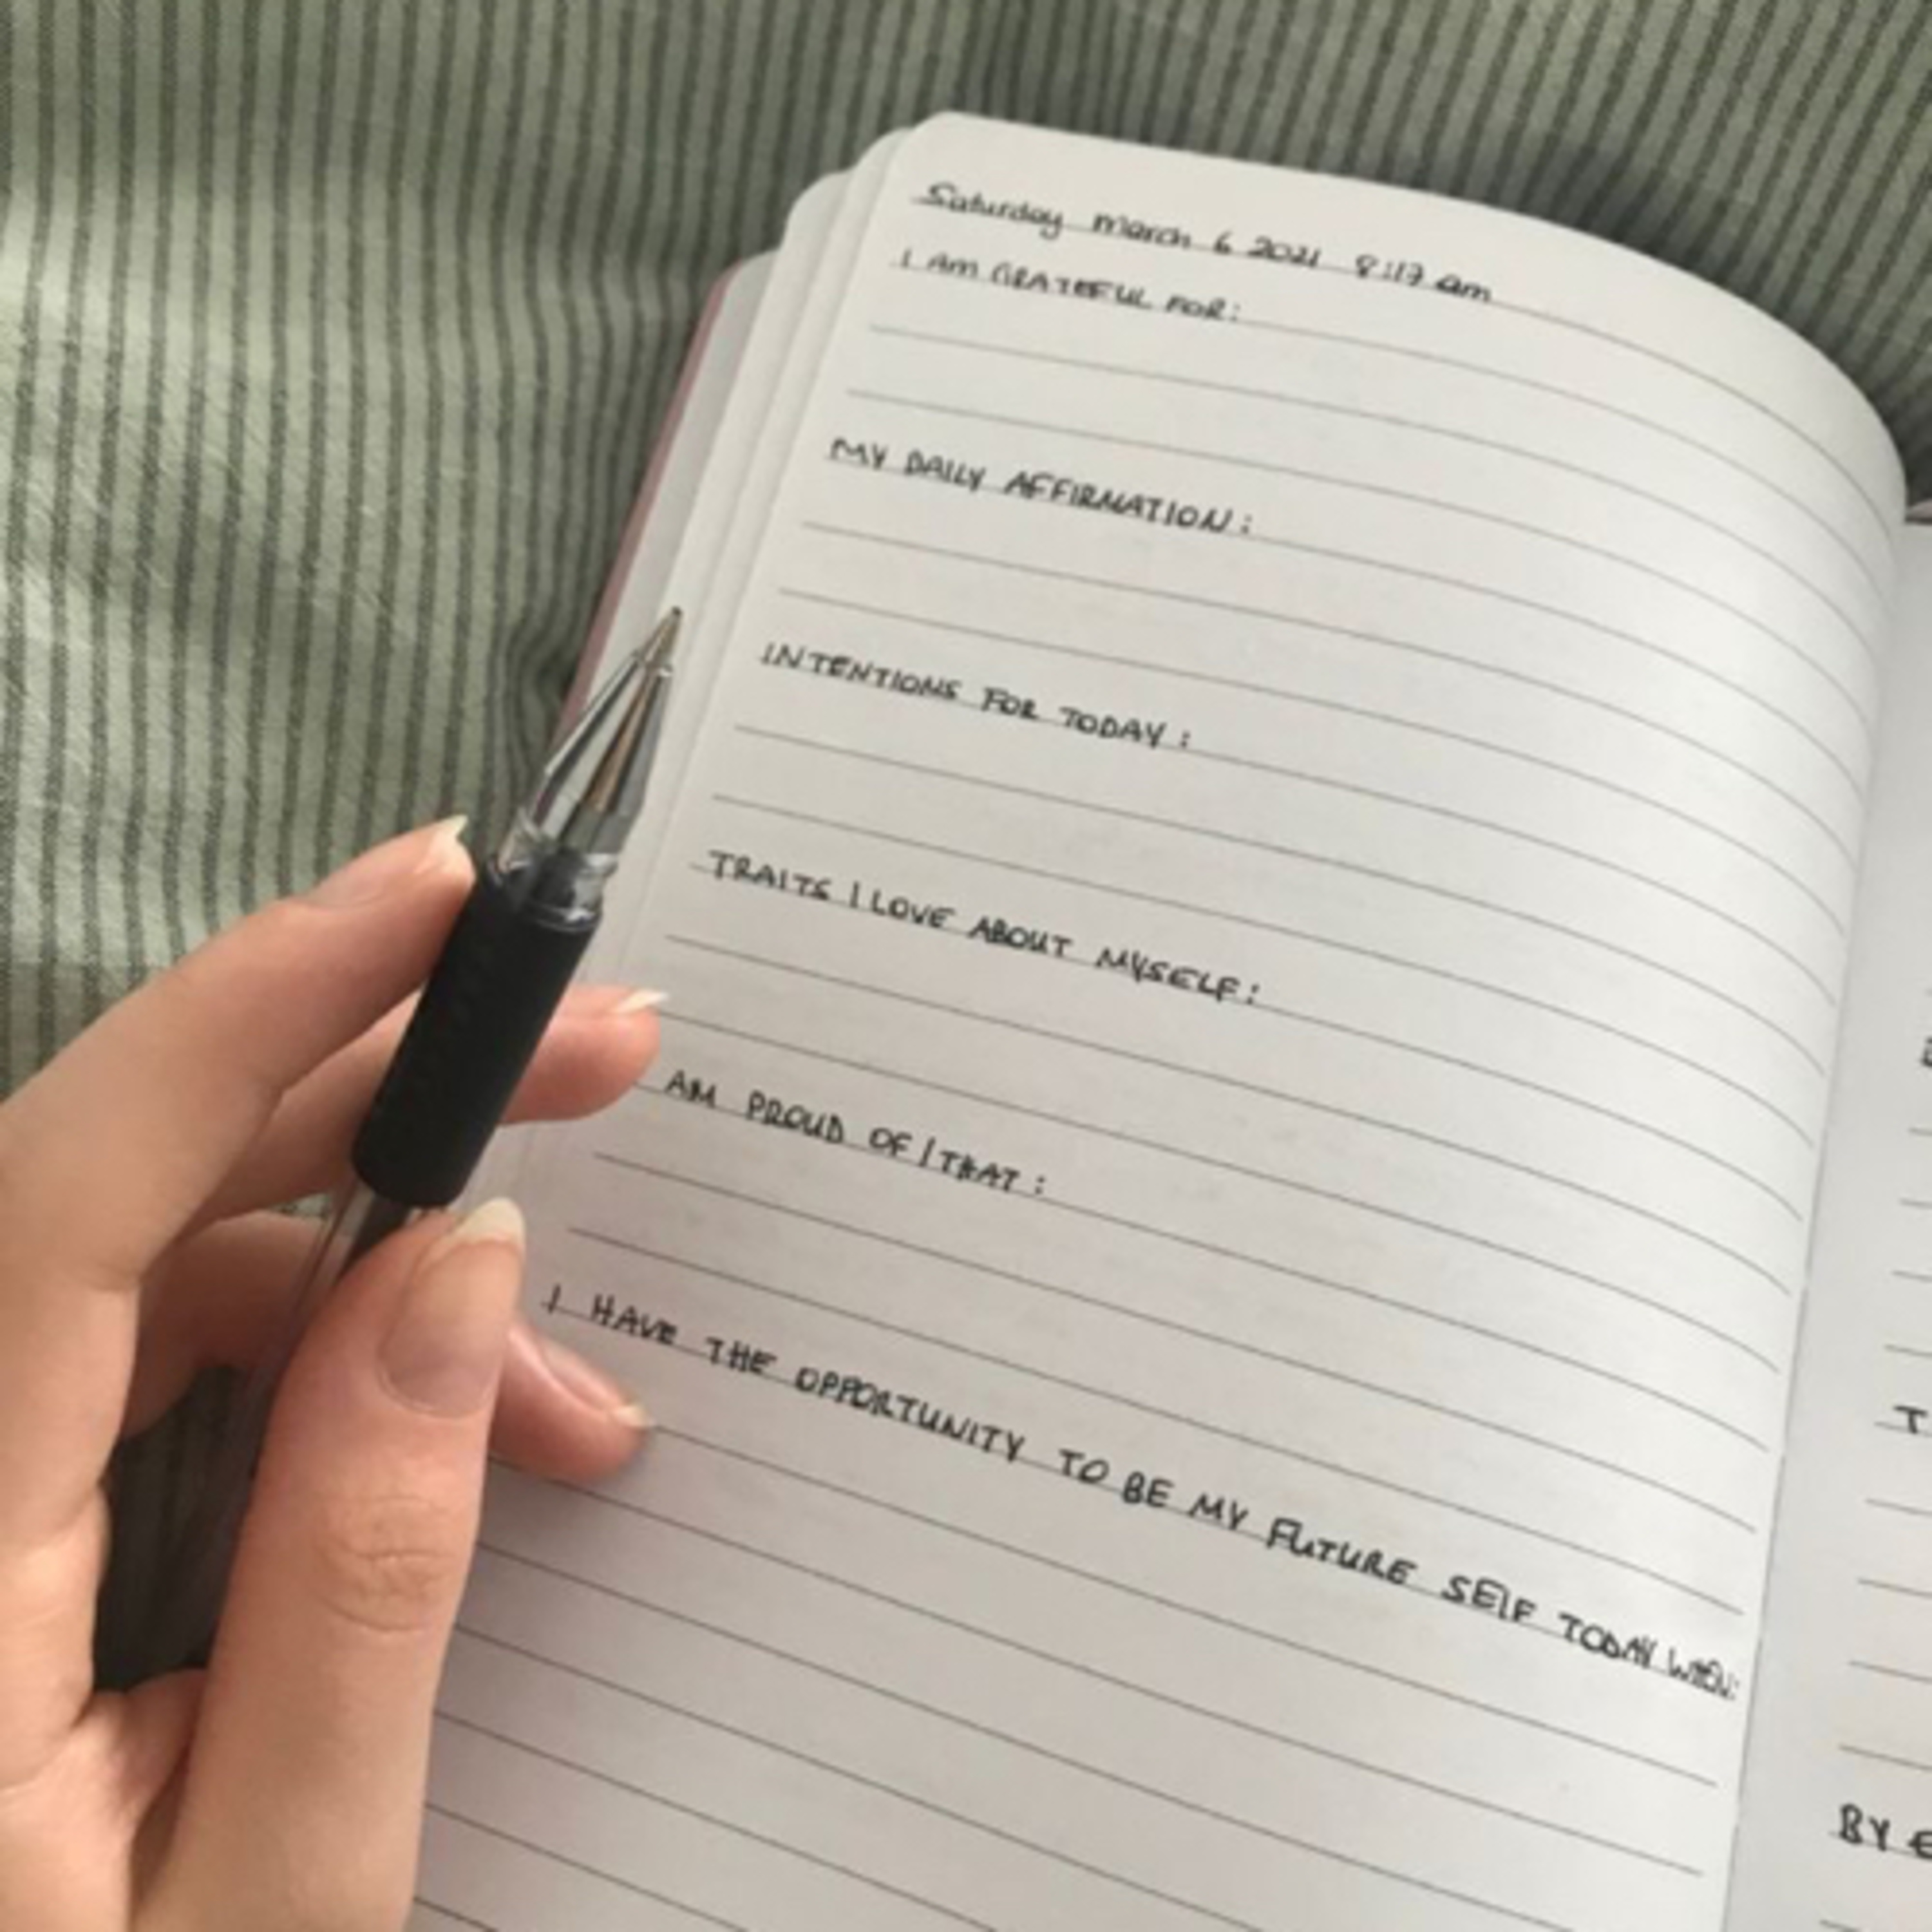 Saturday March 6 2021 8:17 am
I AM GRATEFUL FOR:
MY DAILY AFFIRMATION:
INTENTIONS FOR TODAY:
TRAITS I LOVE ABOUT MYSELF:
AM PROUD OF / THAT:
I HAVE THE OPPORTUNITY TO BE MY FUTURE SELF TODAY WHEN:
T
BY